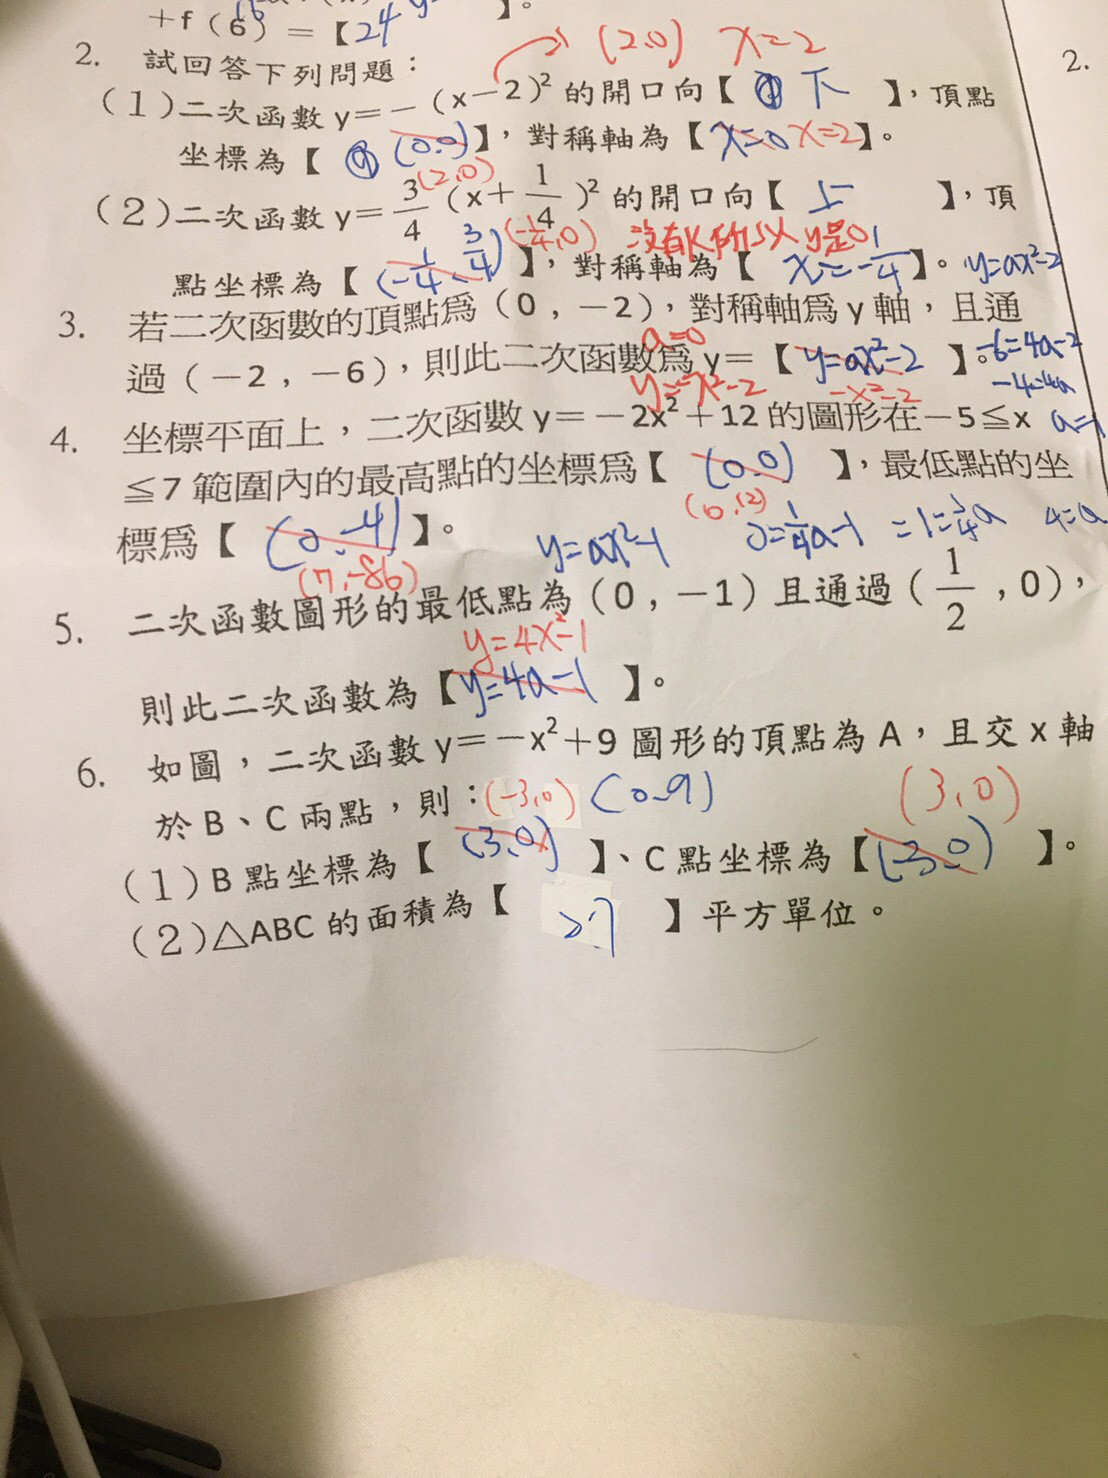 +f(6)=【24 】。
2. 試回答下列問題： (2,0) x=2
2.
(1)二次函數 y=－(x－2)² 的開口向【 下 】，頂點
坐標為【 (0,0) 】，對稱軸為【x=0 x=2】。
(2,0)
(2)二次函數 y=3/4(x+1/4)² 的開口向【 上 】，頂
(-1/4,0) 沒有K所以y是0
點坐標為【(-1/4, 3/4)】，對稱軸為【 x=-1/4 】。 y=ax²-2
3. 若二次函數的頂點為(0，－2)，對稱軸為 y 軸，且通
a=0
過(－2，－6)，則此二次函數為 y=【 y=ax²-2 】。 -6=4a-2
y=-x²-2 -x²-2 -4=4a
4. 坐標平面上，二次函數 y=－2x²+12 的圖形在－5≦x a=-1
≦7 範圍內的最高點的坐標為【 (0,0) 】，最低點的坐
(0,12)
標為【 (0,-4) 】。 y=ax²-1 0=1/4a-1 =1=1/4a 4=a
(7,-86)
5. 二次函數圖形的最低點為(0，－1)且通過(1/2，0)，
y=4x²-1
則此二次函數為【y=4a-1 】。
6. 如圖，二次函數 y=－x²+9 圖形的頂點為 A，且交 x 軸
於 B、C 兩點，則： (-3,0) (0,9) (3,0)
(1)B 點坐標為【 (3,0) 】、C 點坐標為【(-3,0) 】。
(2)△ABC 的面積為【 27 】平方單位。